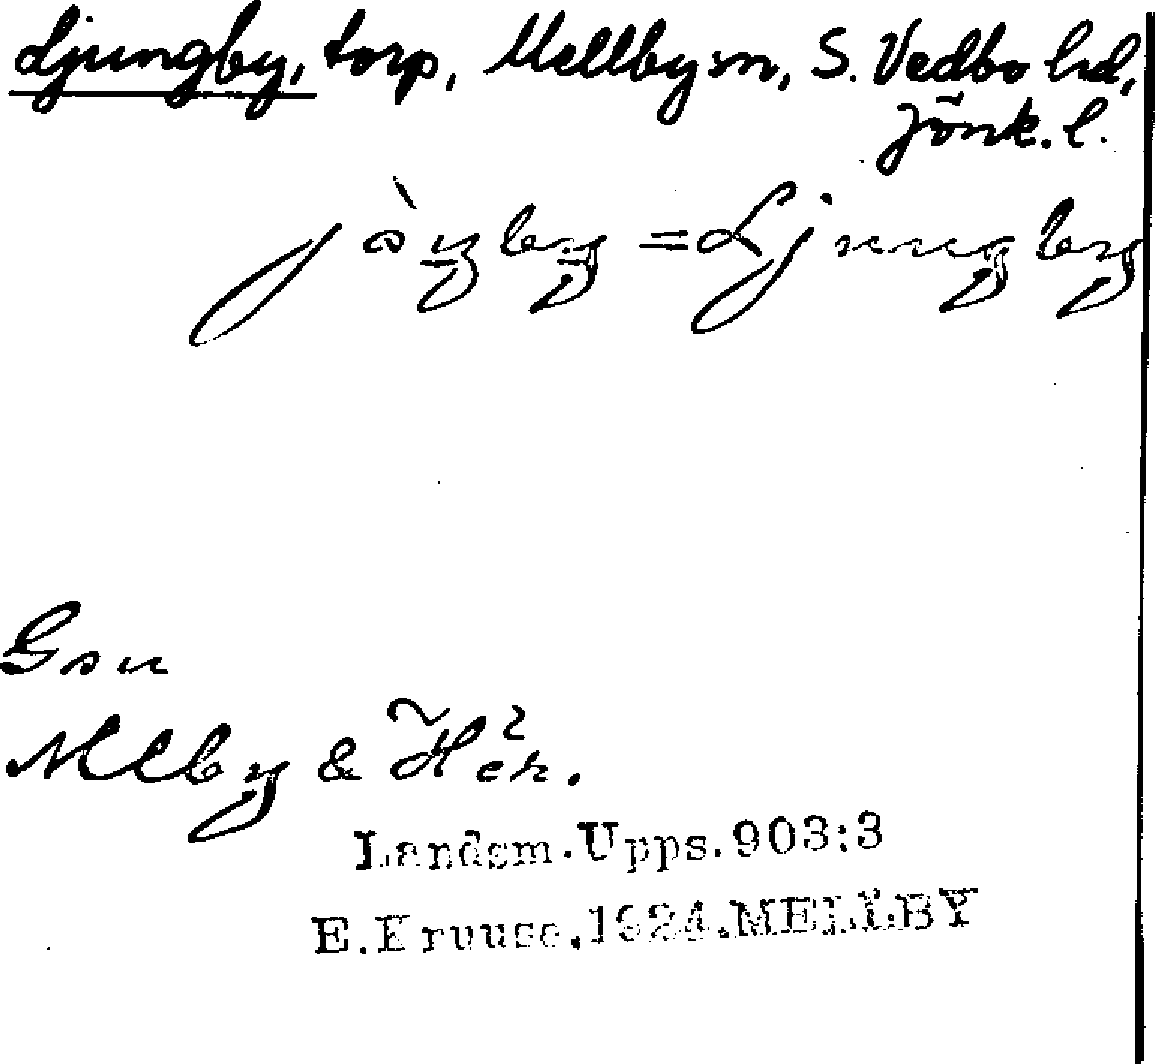 Ljungby, torp, Mellby sn, S. Vedbo hd,
Jönk. l.
= Ljungby
Mlby & Här.
Landsm.Upps.903:3
E.Kruuse.1924.MELLBY